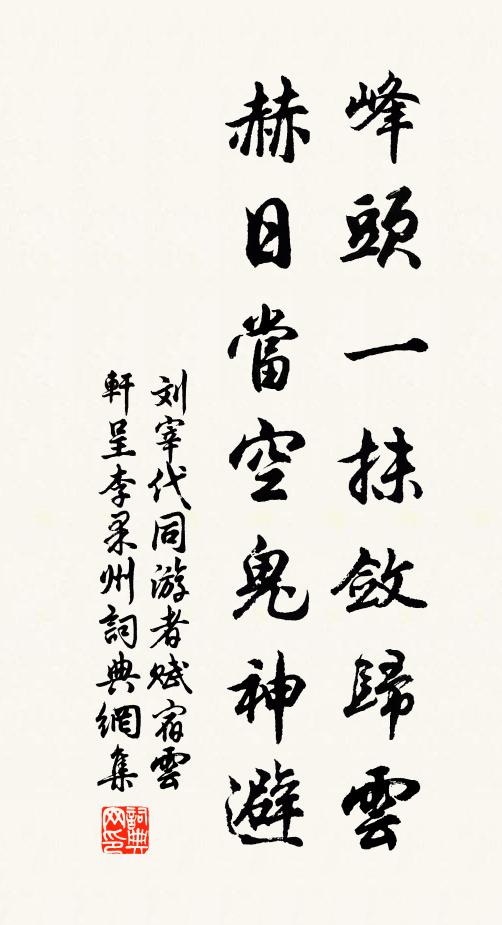 峰頭一抹斂歸雲
赫日當空鬼神避
刘宰代同游者赋宿雲
軒呈李果州詞典網集
詞典
网印